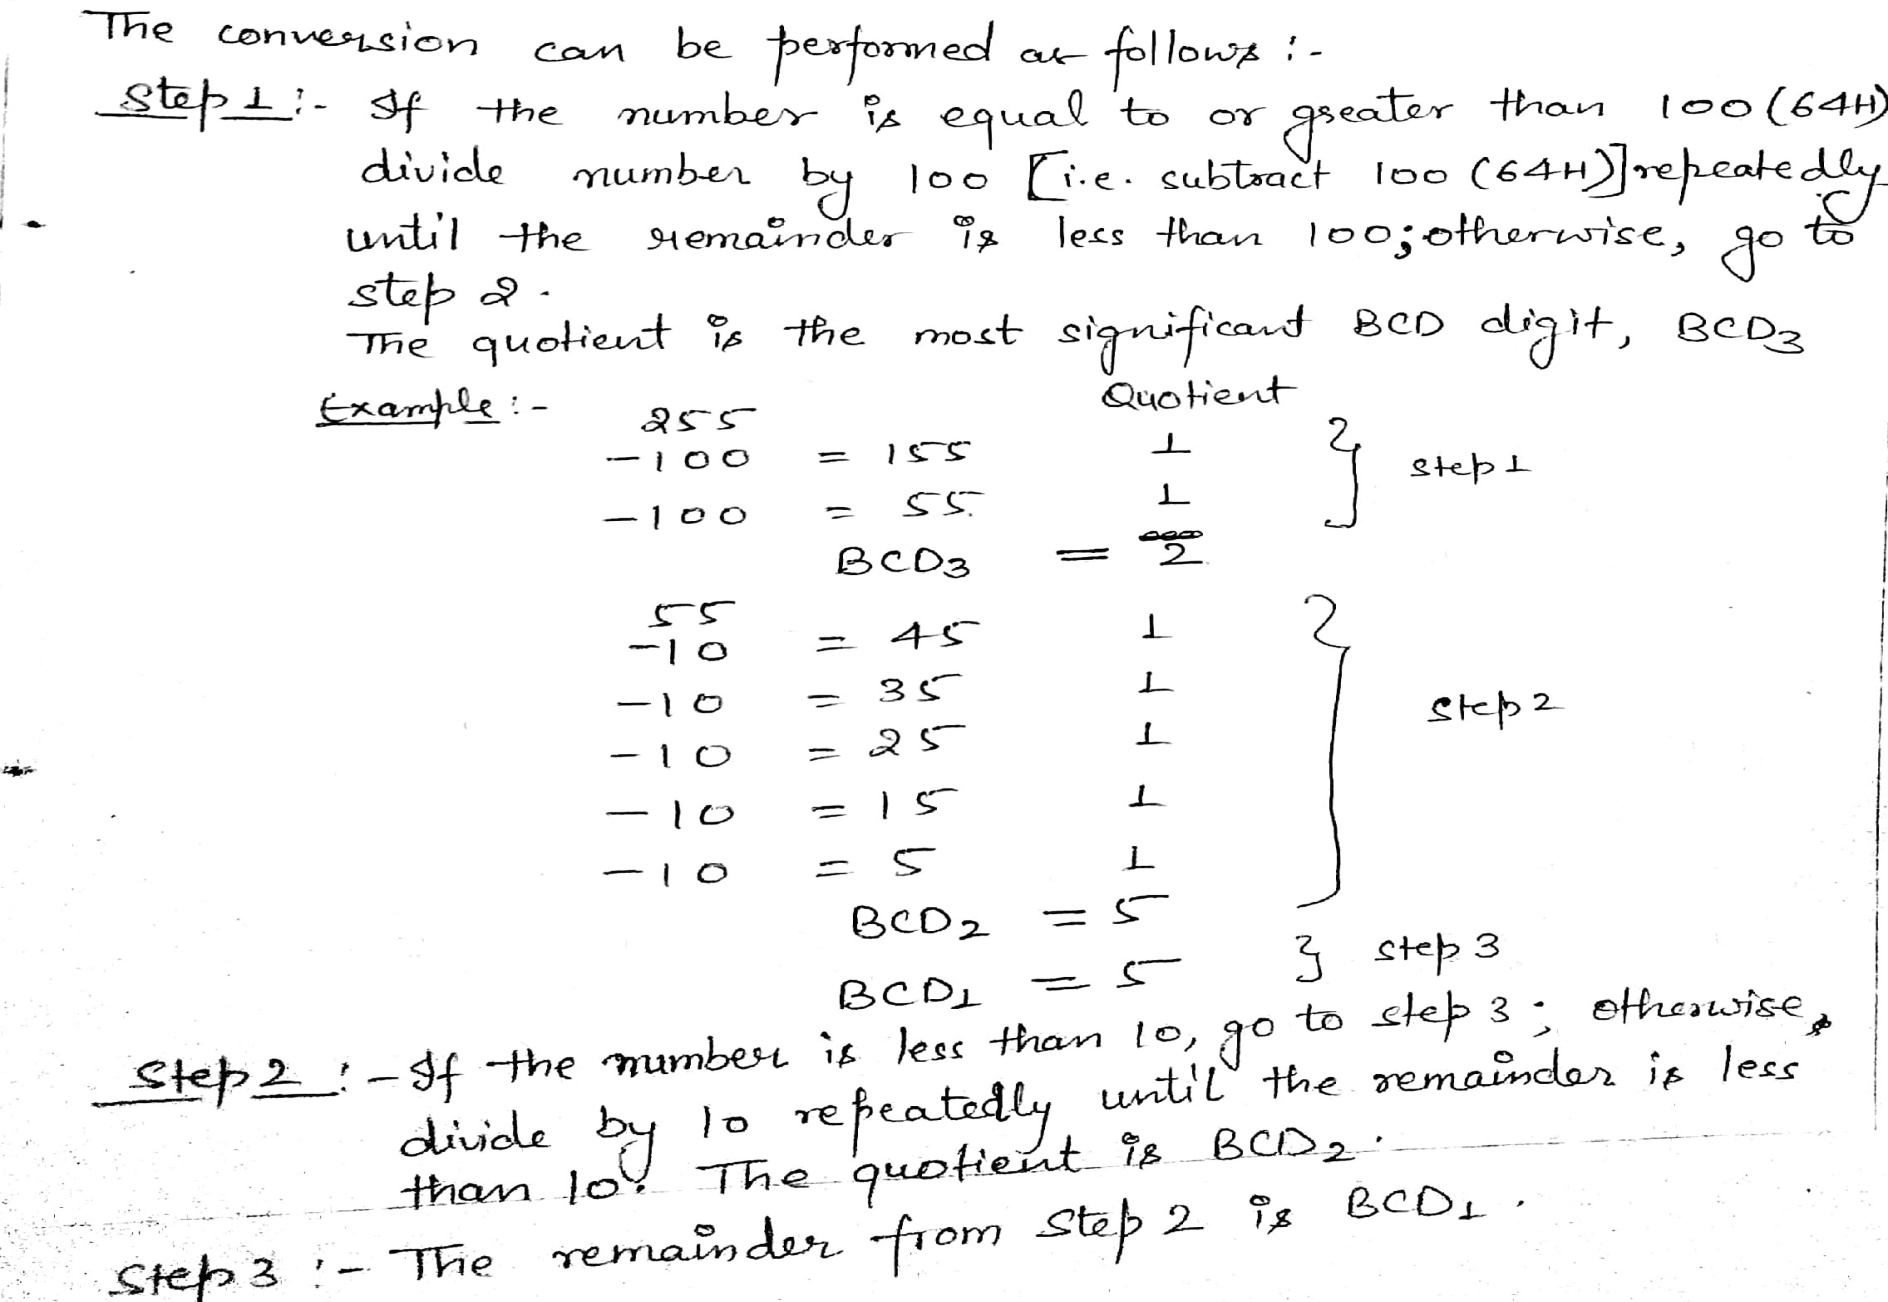 The conversion can be performed as follows :-
Step 1 :- If the number is equal to or greater than 100 (64H)
divide number by 100 [i.e. subtract 100 (64H)] repeatedly
until the remainder is less than 100; otherwise, go to
step 2.
The quotient is the most significant BCD digit, BCD3
Example :- 255 Quotient
-100 = 155 1 } step 1
-100 = 55. 1
BCD3 = 2
55
-10 = 45 1
-10 = 35 1 } step 2
-10 = 25 1
-10 = 15 1
-10 = 5 1
BCD2 = 5
BCD1 = 5 } step 3
Step 2 :- If the number is less than 10, go to step 3 ; otherwise,
divide by 10 repeatedly until the remainder is less
than 10. The quotient is BCD2.
Step 3 :- The remainder from step 2 is BCD1.